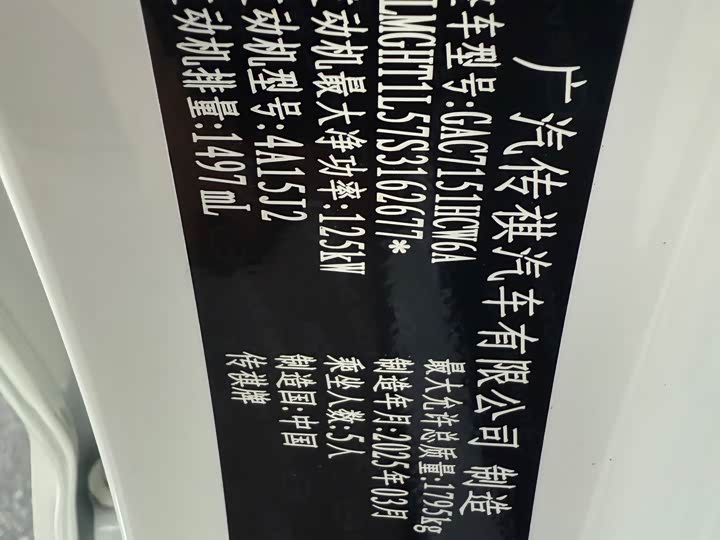 广汽传祺汽车有限公司 制造
车型号:GAC7151HCW6A 最大允许总质量:1795kg
LMGHT1L57S3162677* 制造年月:2025年03月
动机最大净功率:125kW 乘坐人数:5人
动机型号:4A15J2 制造国:中国
动机排量:1497mL 传祺牌